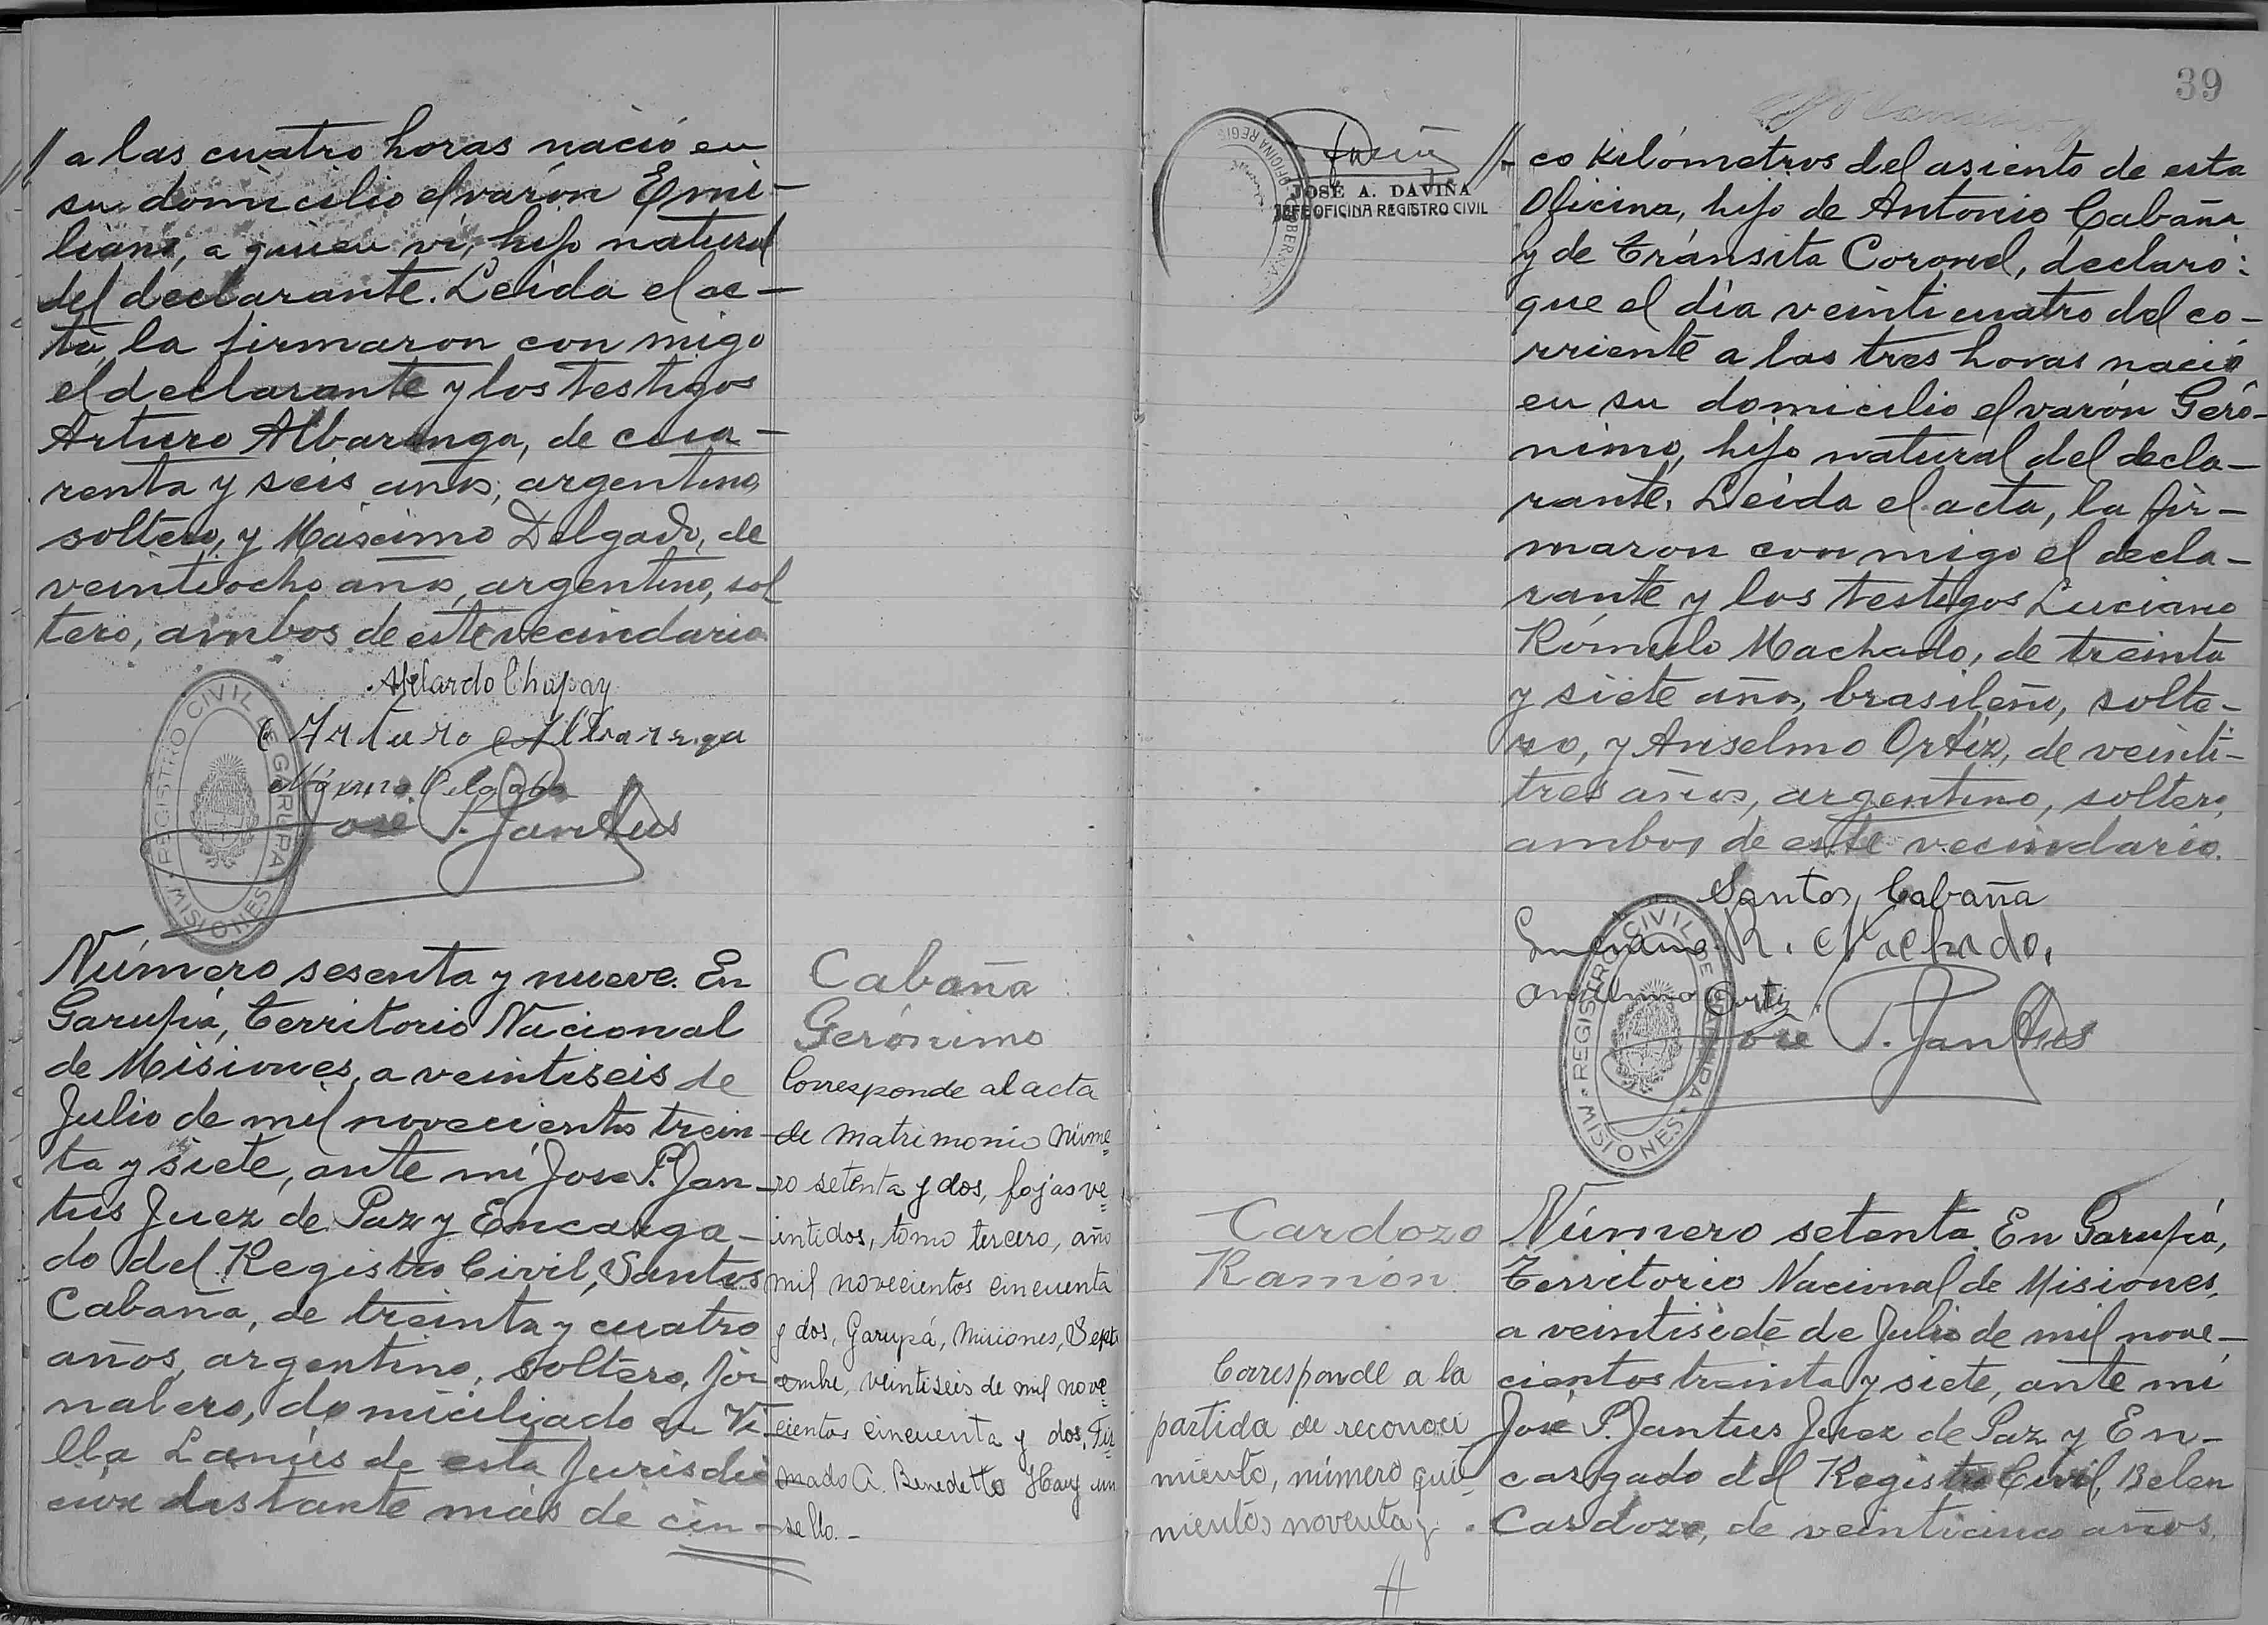 // a las cuatro horas nació en
su domicilio el varón Emi-
liano, a quien ví, hijo natural
del declarante. Leída el ac-
ta, la firmaron con migo
el declarante y los testigos
Arturo Albarenga, de cua-
renta y seis años, argentino,
soltero, y Máximo Delgado, de
veintiocho años, argentino, sol
tero, ambos de este vecindario.
Abelardo Chapay
Arturo Albarenga
Máximo Delgado
José P. Jantus
REGISTRO CIVIL DE GARUPA
MISIONES
Número sesenta y nueve. En
Garupá, Territorio Nacional
de Misiones, a veintiseis de
Julio de mil novecientos trein-
ta y siete, ante mí José P. Jan-
tus Juez de Paz y Encarga-
do del Registro Civil, Santos
Cabaña, de treinta y cuatro
años, argentino, soltero, jor
nalero, domiciliado en Vi-
lla Lanús de esta Jurisdic
cion distante más de cin-
Cabaña
Gerónimo
Corresponde al acta
de matrimonio núme
ro setenta y dos, fojas ve
intidos, tomo tercero, año
mil novecientos cincuenta
y dos, Garupá, Misiones, Septi
embre, veintiseis de mil nove
cientos cincuenta y dos, Fir
mado A. Benedetto Hay un
sello.-
39
OFICINA REGIS
JOSÉ A. DAVIÑA
JEFE OFICINA REGISTRO CIVIL
//- co kilómetros del asiento de esta
Oficina, hijo de Antonio Cabaña
y de Tránsita Coronel, declaró:
que el día veinticuatro del co-
rriente a las tres horas nació
en su domicilio el varón Geró-
nimo, hijo natural del decla-
rante. Leída el acta, la fir-
maron con migo el decla-
rante y los testigos Luciano
Rómulo Machado, de treinta
y siete años, brasileño, solte-
ro, y Anselmo Ortíz, de veinti-
tres años, argentino, soltero,
ambos de este vecindario.
Santos Cabaña
Luciano R. Machado.
Anselmo Ortiz
José P. Jantus
REGISTRO CIVIL DE GARUPA
MISIONES
Cardozo
Ramón
Corresponde a la
partida de reconoci
miento, número qui-
nientos noventa y
Número setenta. En Garupá,
Territorio Nacional de Misiones,
a veintisiete de Julio de mil nove-
cientos treinta y siete, ante mí
José P. Jantus Juez de Paz y En-
cargado del Registro Civil, Belen
Cardozo, de veinticinco años,